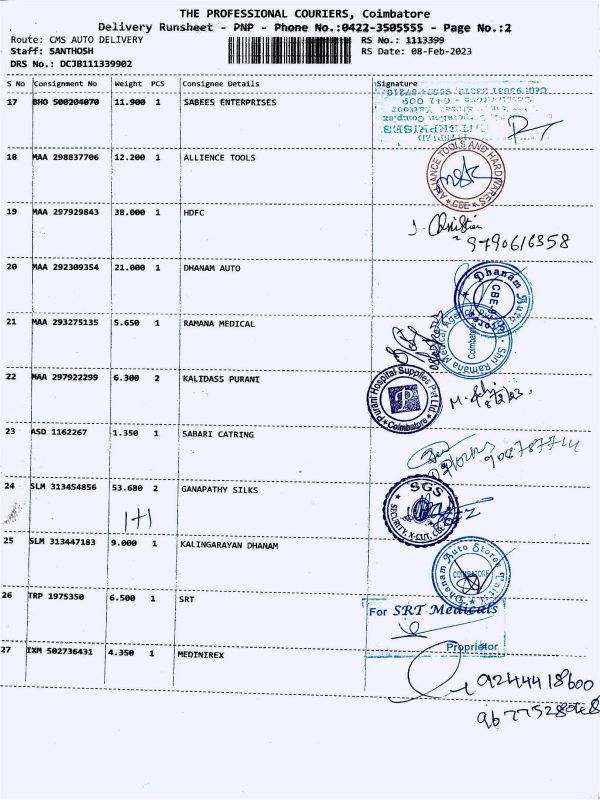 THE PROFESSIONAL COURIERS, Coimbatore
Delivery Runsheet - PNP - Phone No.:0422-3505555 - Page No.:2
Route: CMS AUTO DELIVERY RS No.: 1113399
Staff: SANTHOSH RS Date: 08-Feb-2023
DRS No.: DCJB111339902
S No Consignment No Weight PCS Consignee Details Signature
17 BHO 500204070 11.900 1 SABEES ENTERPRISES
18 MAA 298837706 12.200 1 ALLIENCE TOOLS
ALLIANCE TOOLS AND HARDWARES
CBE
19 MAA 297929843 38.000 1 HDFC
9790616358
20 MAA 292309354 21.000 1 DHANAM AUTO
Dhanam Auto Stores
CBE-9
21 MAA 293275135 5.650 1 RAMANA MEDICAL
Shri Ramana Medical
Coimbatore
22 MAA 297922299 6.300 2 KALIDASS PURANI
Purani Hospital Supplies Pvt Ltd
P
Coimbatore
8/2/23
23 ASD 1162267 1.350 1 SABARI CATRING
24 SLM 313454856 53.680 2 GANAPATHY SILKS
1+1
SGS
SECURITY, X-CUT, CBE
25 SLM 313447183 9.000 1 KALINGARAYAN DHANAM
Dhanam Auto Stores
COIMBATORE
26 TRP 1975350 6.500 1 SRT
For SRT Medicals
Proprietor
27 IXM 502736431 4.350 1 MEDINIREX
9244418600